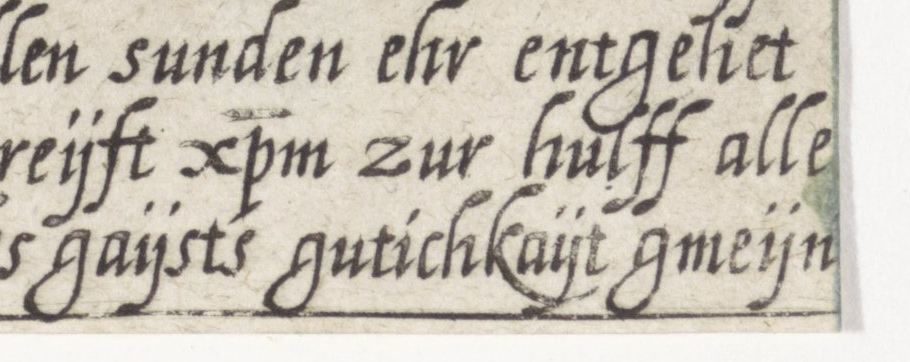 llen sunden ehr entgehet
reijft xp̄m zur hulff alle
s gaijsts gutichkaijt gmeijn